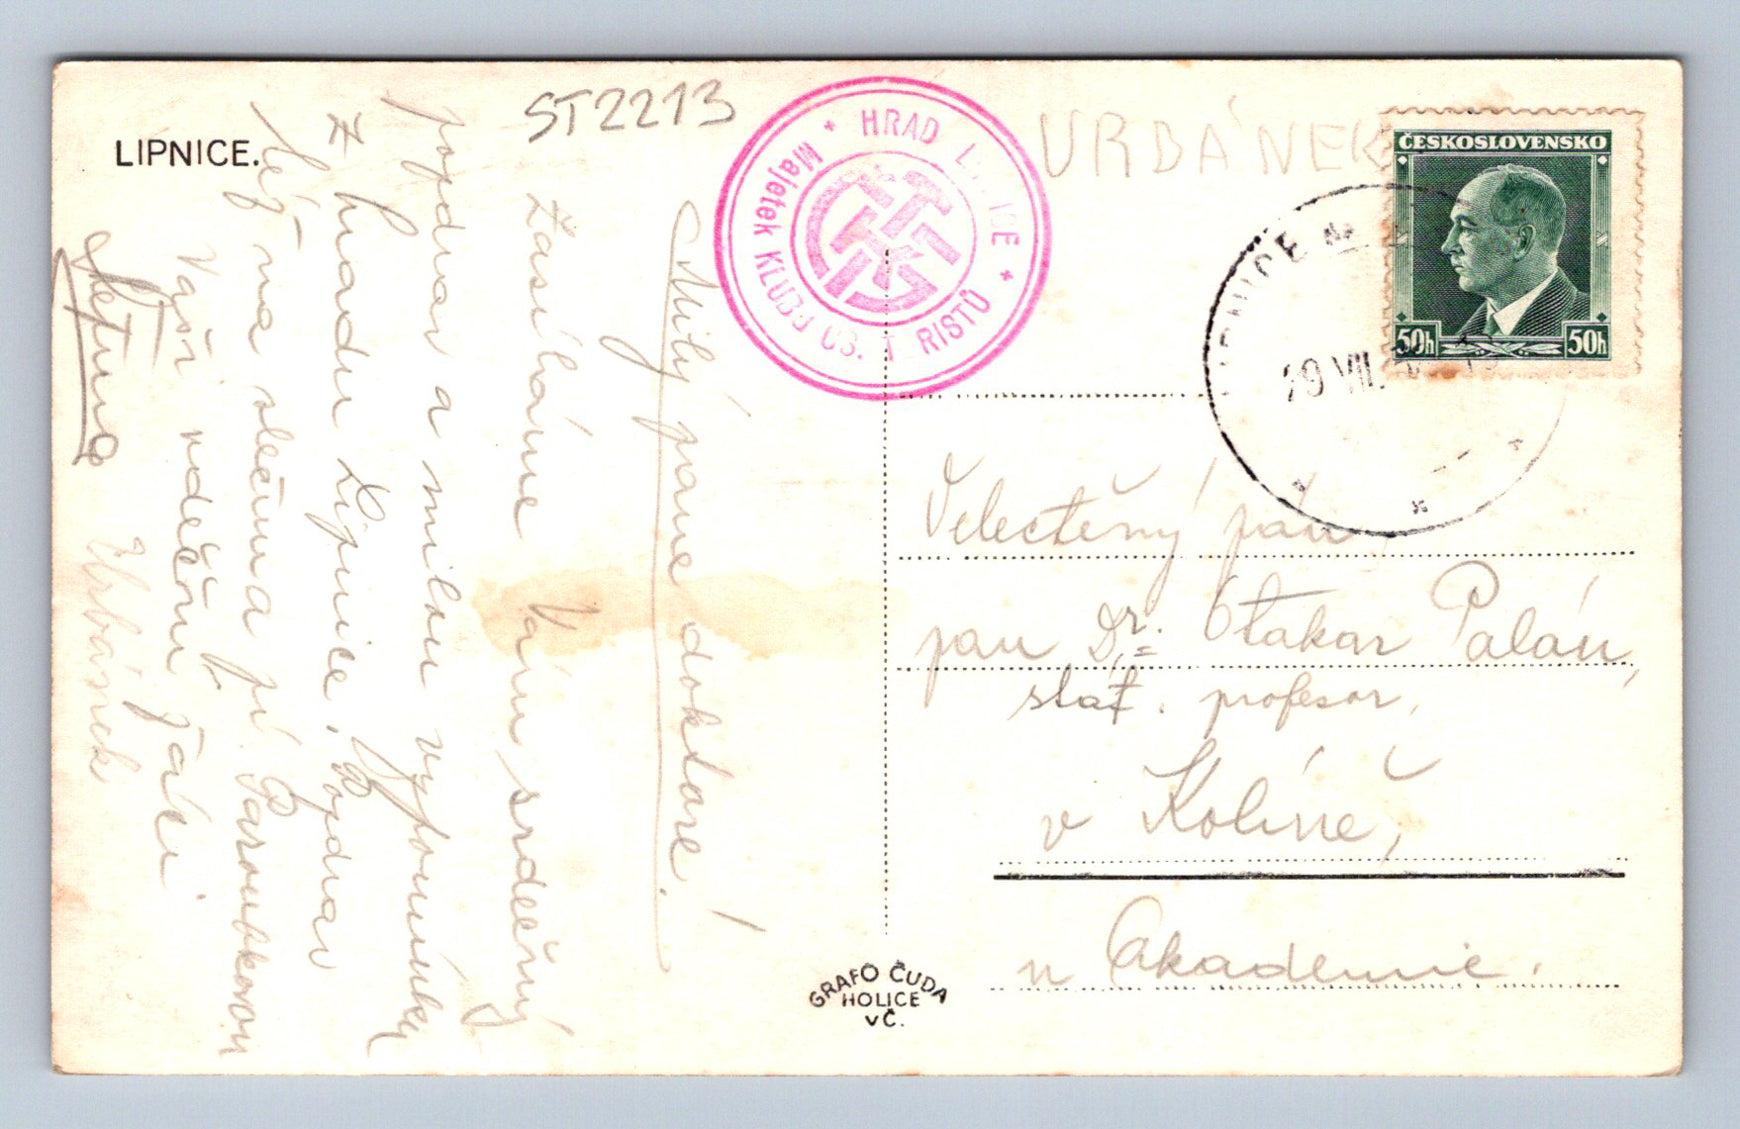 LIPNICE.
ST2213
HRAD LIPNICE
Majetek KLUBU ČS. TURISTŮ
URBÁNEK
ČESKOSLOVENSKO
50h 50h
LIPNICE N
29 VII.
Milý pane doktore!
Zasíláme Vám srdečný
pozdrav a milou vzpomínku
z hradu Lipnice. Pozdrav
též na slečnu a pí. Paroubkovou
Vaši vděční žáci.
Urbánek
Velectěný pán,
pan Dr. Otakar Palán,
stát. profesor,
v Kolíně,
u Akademie.
GRAFO ČUDA
HOLICE
VČ.